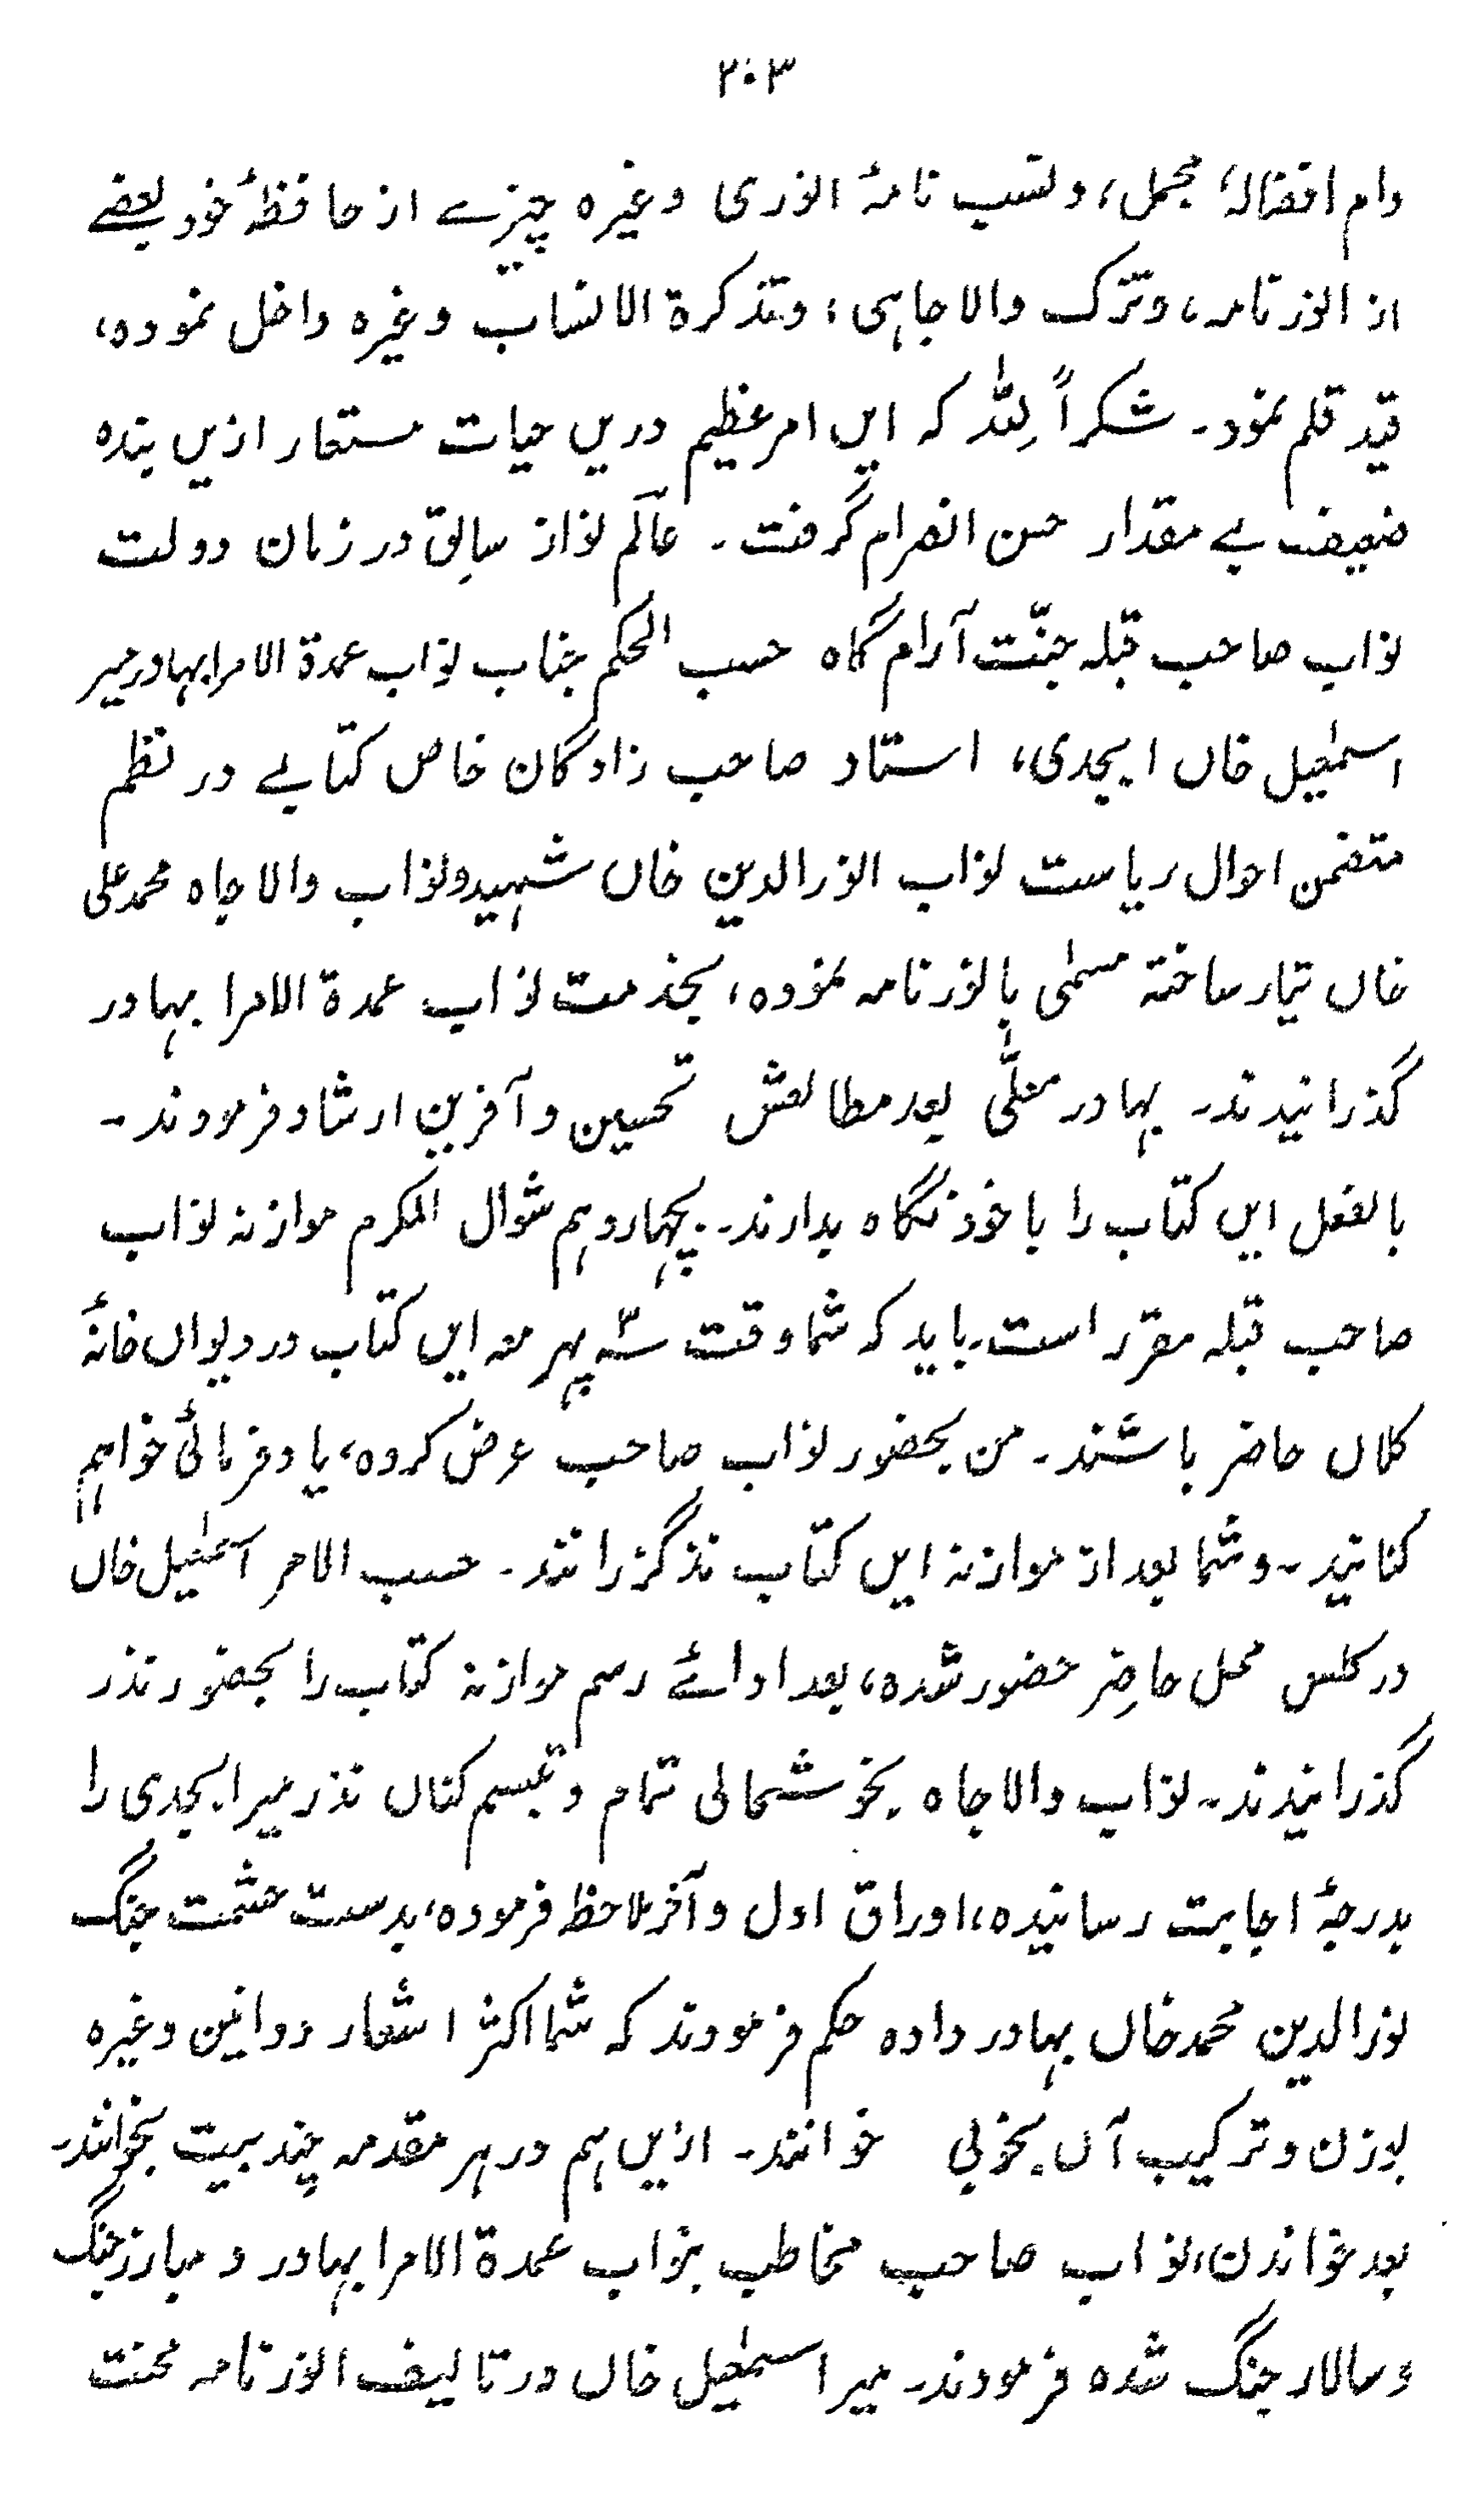 ۲۰۳
دام افضالہٗ مجمل، ونسب نامۂ انوری وغیرہ چیزے از حافظۂ خود بعضے
از انورنامہ، وتزک والاجاہی، وتذکرۃ الانساب وغیرہ داخل نمودہ،
قید قلم نمود۔ شکراً لِلّٰہ کہ ایں امر عظیم دریں حیات مستعار ازیں بندہ
ضعیف بے مقدار حسن انصرام گرفت۔ عالَم نواز سابِق در زمان دولت
نواب صاحب قبلہ جنّت آرام گاہ حسب الحکم جناب نواب عمدۃ الامرا بہادر میر
اسمٰعیل خاں ابجدی، استاد صاحب زادگان خاص کتابے در نظم
متضمن احوال ریاست نواب انورالدین خاں شہید ونواب والاجاہ محمد علی
خاں تیار ساختہ مسمّٰی بانورنامہ نمودہ، بخدمت نواب عمدۃ الامرا بہادر
گذرانیدند۔ بہادر معلّٰی بعد مطالعش تحسین وآفرین ارشاد فرمودند۔
بالفعل ایں کتاب را باخود نگاہ بدارند۔ بچہاردہم شوال المکرم موازنہ نواب
صاحب قبلہ مقرر است۔ باید کہ شما وقت سہ پہر معہ ایں کتاب در دیواں خانۂ
کلاں حاضر باشند۔ من بحضور نواب صاحب عرض کردہ، یادفرمائی خواہم
کنانید۔ وشما بعد از موازنہ ایں کتاب نذر گزرانند۔ حسب الامر اسمٰعیل خاں
در کلس محل حاضِر حضور شدہ، بعد اداے رسم موازنہ کتاب را بحضور نذر
گذرانیدند۔ نواب والاجاہ بخوشحالی تمام وتبسم کناں نذر میر ابجدی را
بدرجۂ اجابت رسانیدہ، اوراق اول وآخر ملاحظ فرمودہ، بدست حشمت جنگ
نورالدین محمد خاں بہادر دادہ حکم فرمودند کہ شما اکثر اشعار دوانین وغیرہ
بوزن وترکیب آں بخوبی خوانند۔ ازیں ہم در ہر مقدمہ چند بیت بخوانند۔
بعد خواندن، نواب صاحب مخاطب بنواب عمدۃ الامرا بہادر و مبارز جنگ
وسالار جنگ شدہ فرمودند۔ میر اسمٰعیل خاں در تالیف انورنامہ محنت